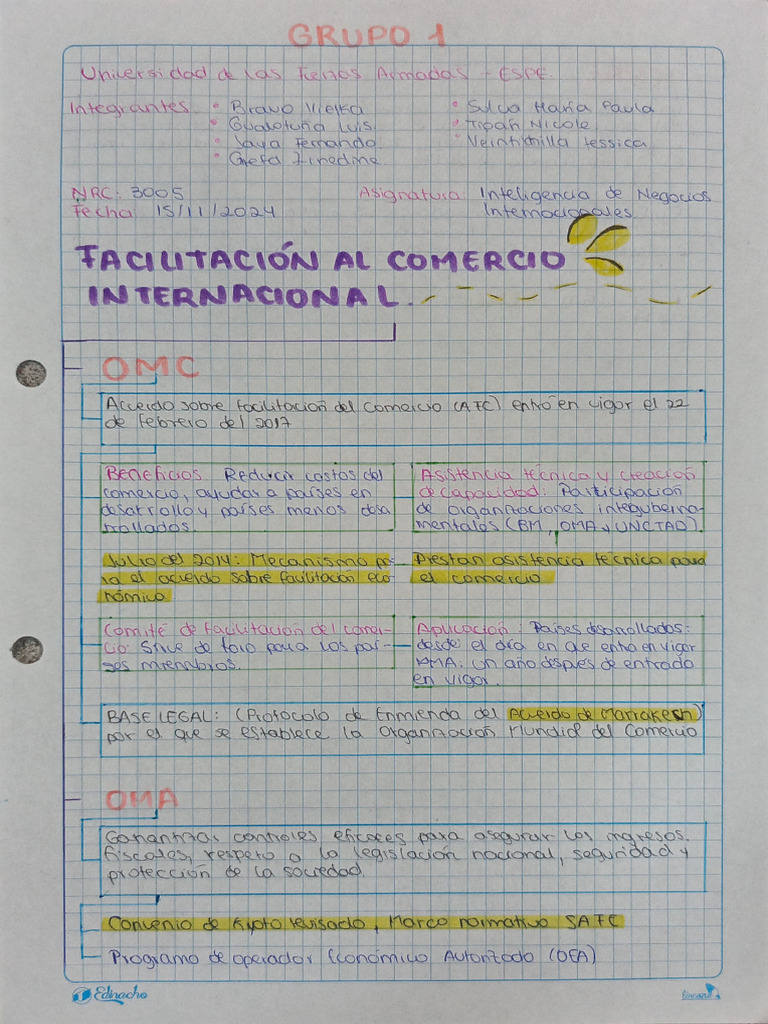 GRUPO 1
Universidad de las Fuerzas Armadas - ESPE.
Integrantes • Bravo • Silva María Paula
• Gualotuña Luis. • Tipán Nicole
• Jaya Fernando. • Veintimilla Jessica
• Grefa
NRC: 3005 Asignatura Inteligencia de Negocios
Fecha: 15/11/2024 Internacionales
FACILITACIÓN AL COMERCIO
INTERNACIONAL.
OMC
Acuerdo sobre facilitación del Comercio (AFC) entró en vigor el 22
de Febrero del 2017
Beneficios. Reducir costos del
comercio, ayudar a países en
desarrollo y países menos desa
rrollados.
Asistencia técnica y creación
de capacidad: Participación
de organizaciones interguberna-
mentales (BM, OMA y UNCTAD).
Julio del 2014: Mecanismo pa-
ra el acuerdo sobre facilitación eco-
nómica
Prestan asistencia técnica para
el comercio
Comité de facilitación del comer-
cio: Sirve de foro para los paí-
ses miembros.
Aplicación: Países disarrollados:
desde el día en que entra en vigor
PMA: un año despues de entrado
en vigor.
BASE LEGAL: (Protocolo de Enmienda del Acuerdo de Marrakech)
por el que se establece la Organización Mundial del Comercio
OMA
Garantizar controles eficaces para asegurar los ingresos.
fiscales, respeto a la legislación nacional, seguridad y
protección de la sociedad.
Convenio de Kyoto revisado, Marco normativo SAFE
Programa de operador Económico Autorizado (OEA)
Edinacho